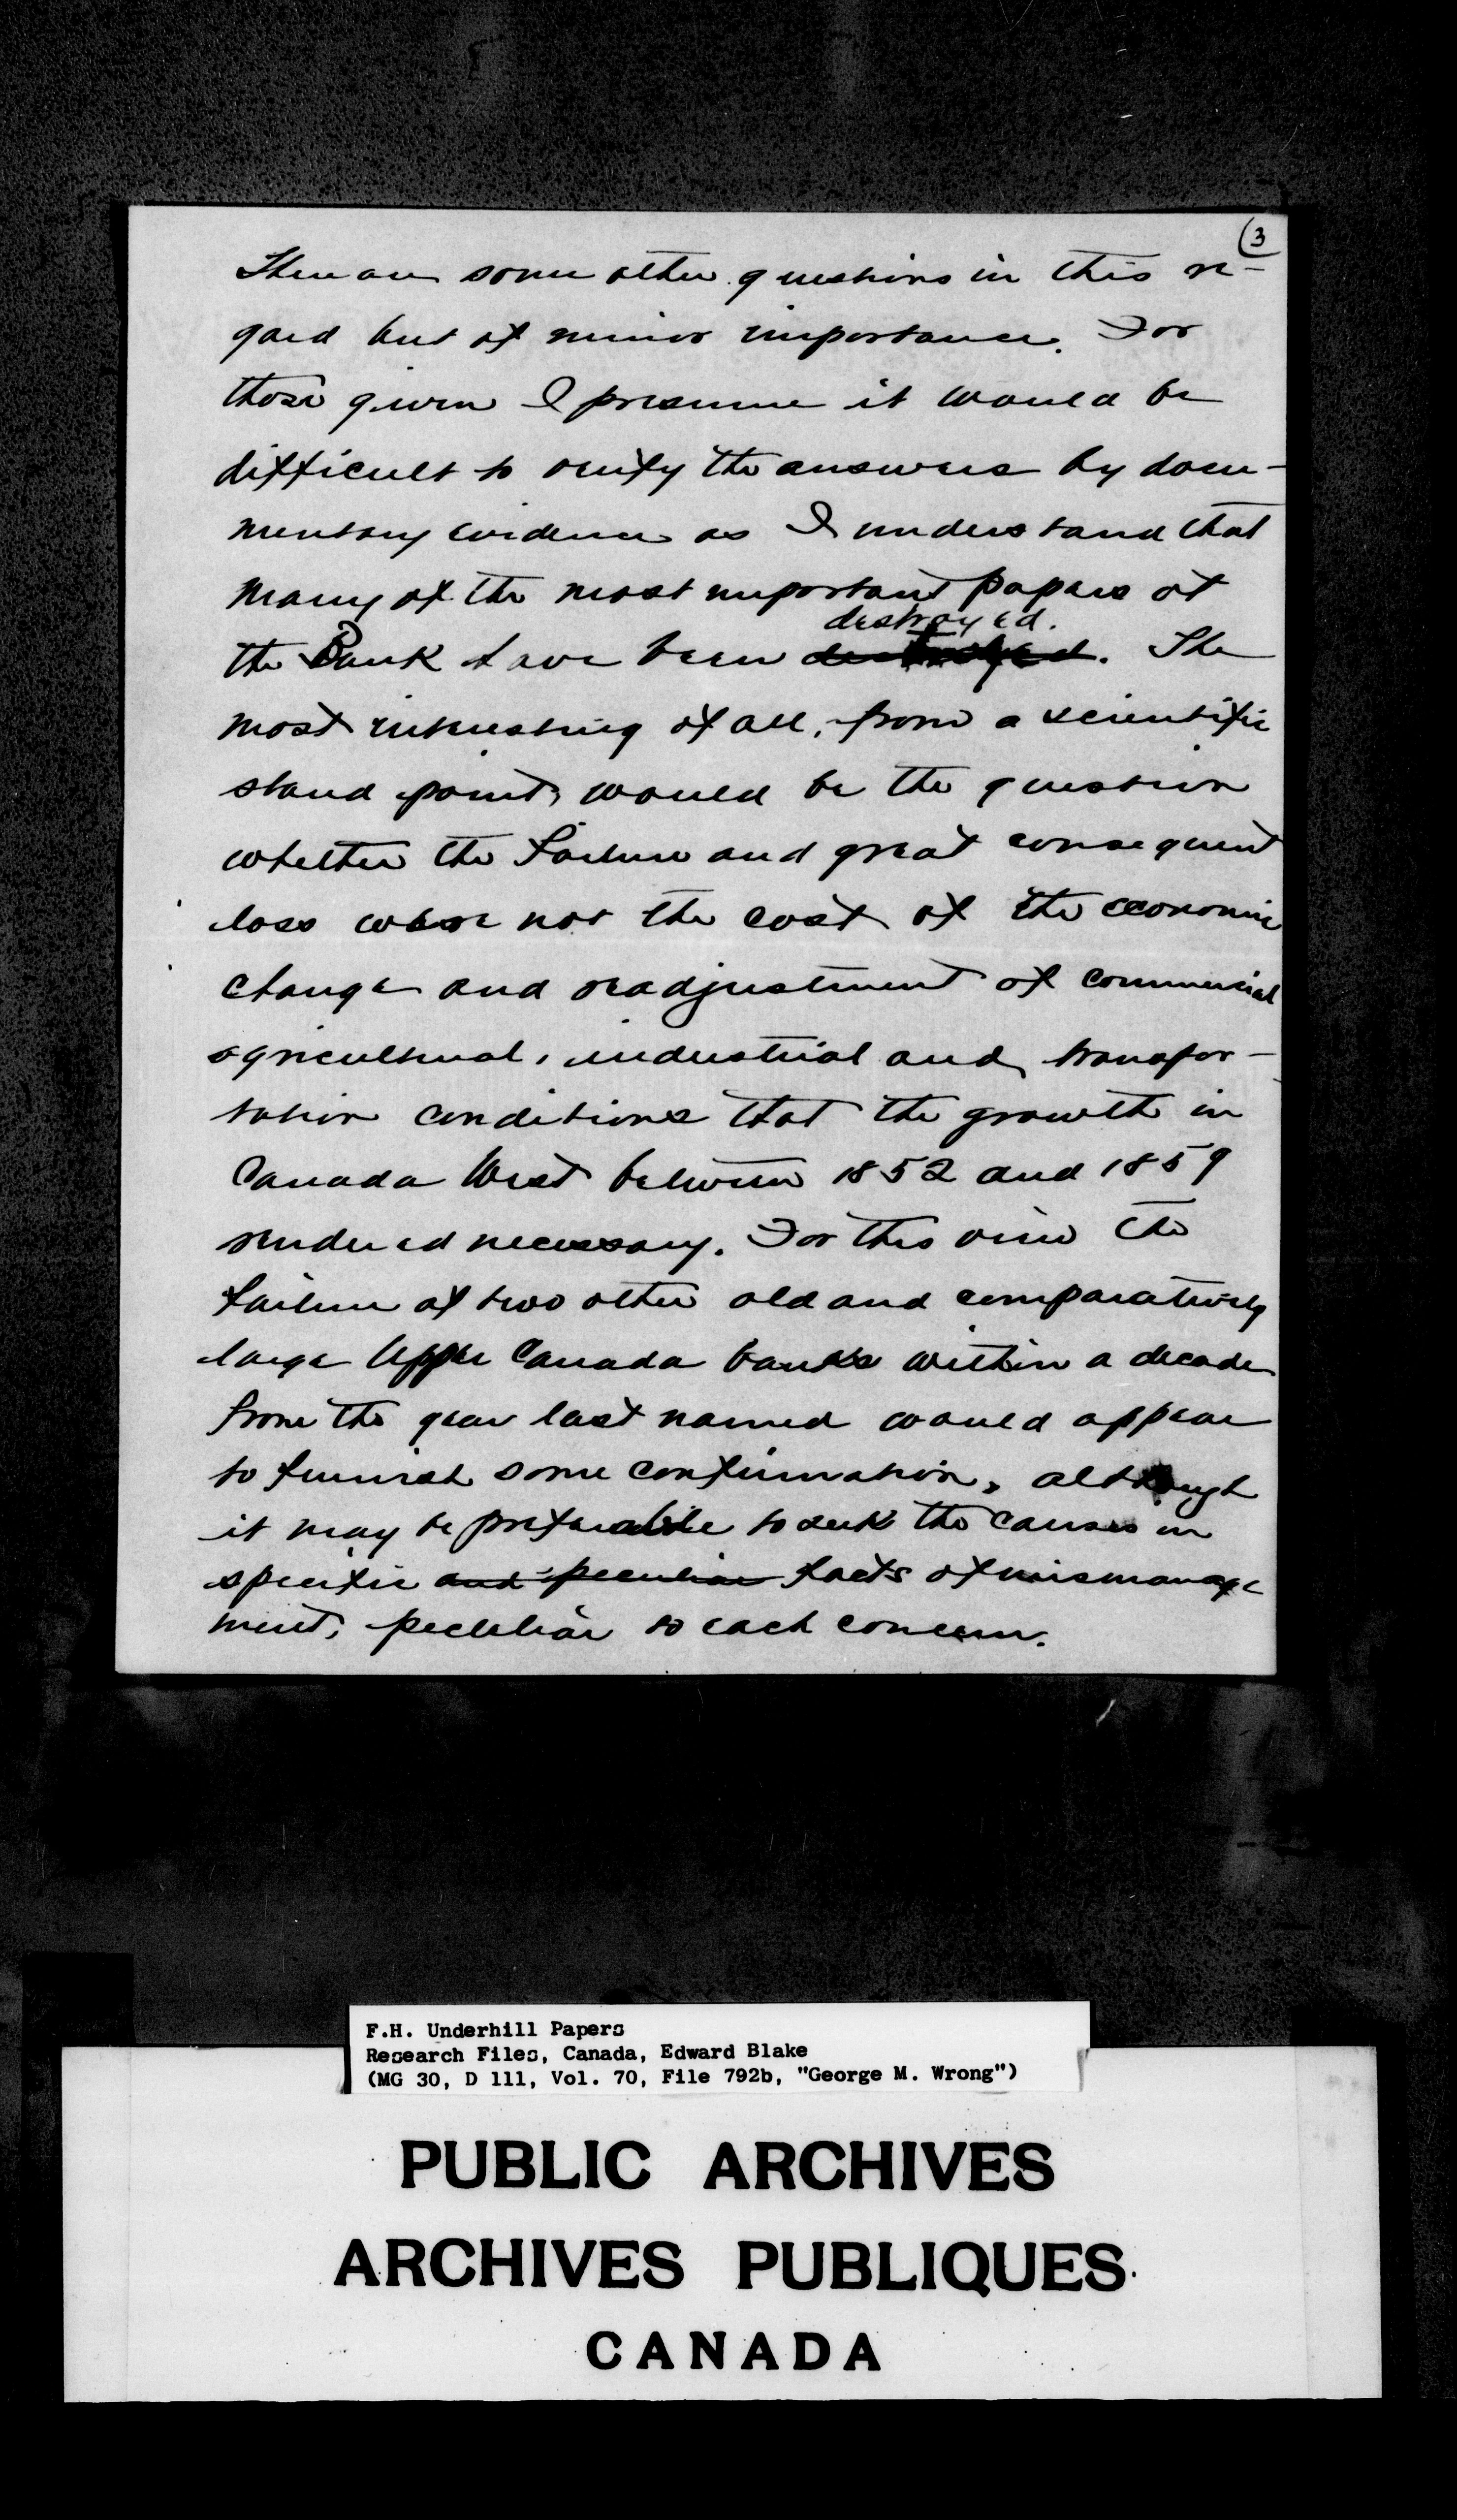 3
There are some other questions in this re-
gard but of minor importance. For
those given I presume it would be
difficult to verify the answers by docu-
mentary evidence as I understand that
many of the most important papers of
destroyed.
the Bank have been destroyed. The
most interesting of all, from a scientific
stand point, would be the question
whether the failure and great consequent
loss were not the cost of the economic
change and readjustment of commercial
agricultural, industrial and transpor-
tation conditions that the growth in
Canada West between 1852 and 1859
rendered necessary. For this view the
failure of two other old and comparatively
large Upper Canada banks within a decade
from the year last named would appear
to furnish some confirmation, although
it may be preferable to seek the causes in
specific and peculiar facts of mismanage
ment, peculiar to each concern.
F.H. Underhill Papers
Research Files, Canada, Edward Blake
(MG 30, D 111, Vol. 70, File 792b, "George M. Wrong")
PUBLIC ARCHIVES
ARCHIVES PUBLIQUES
CANADA